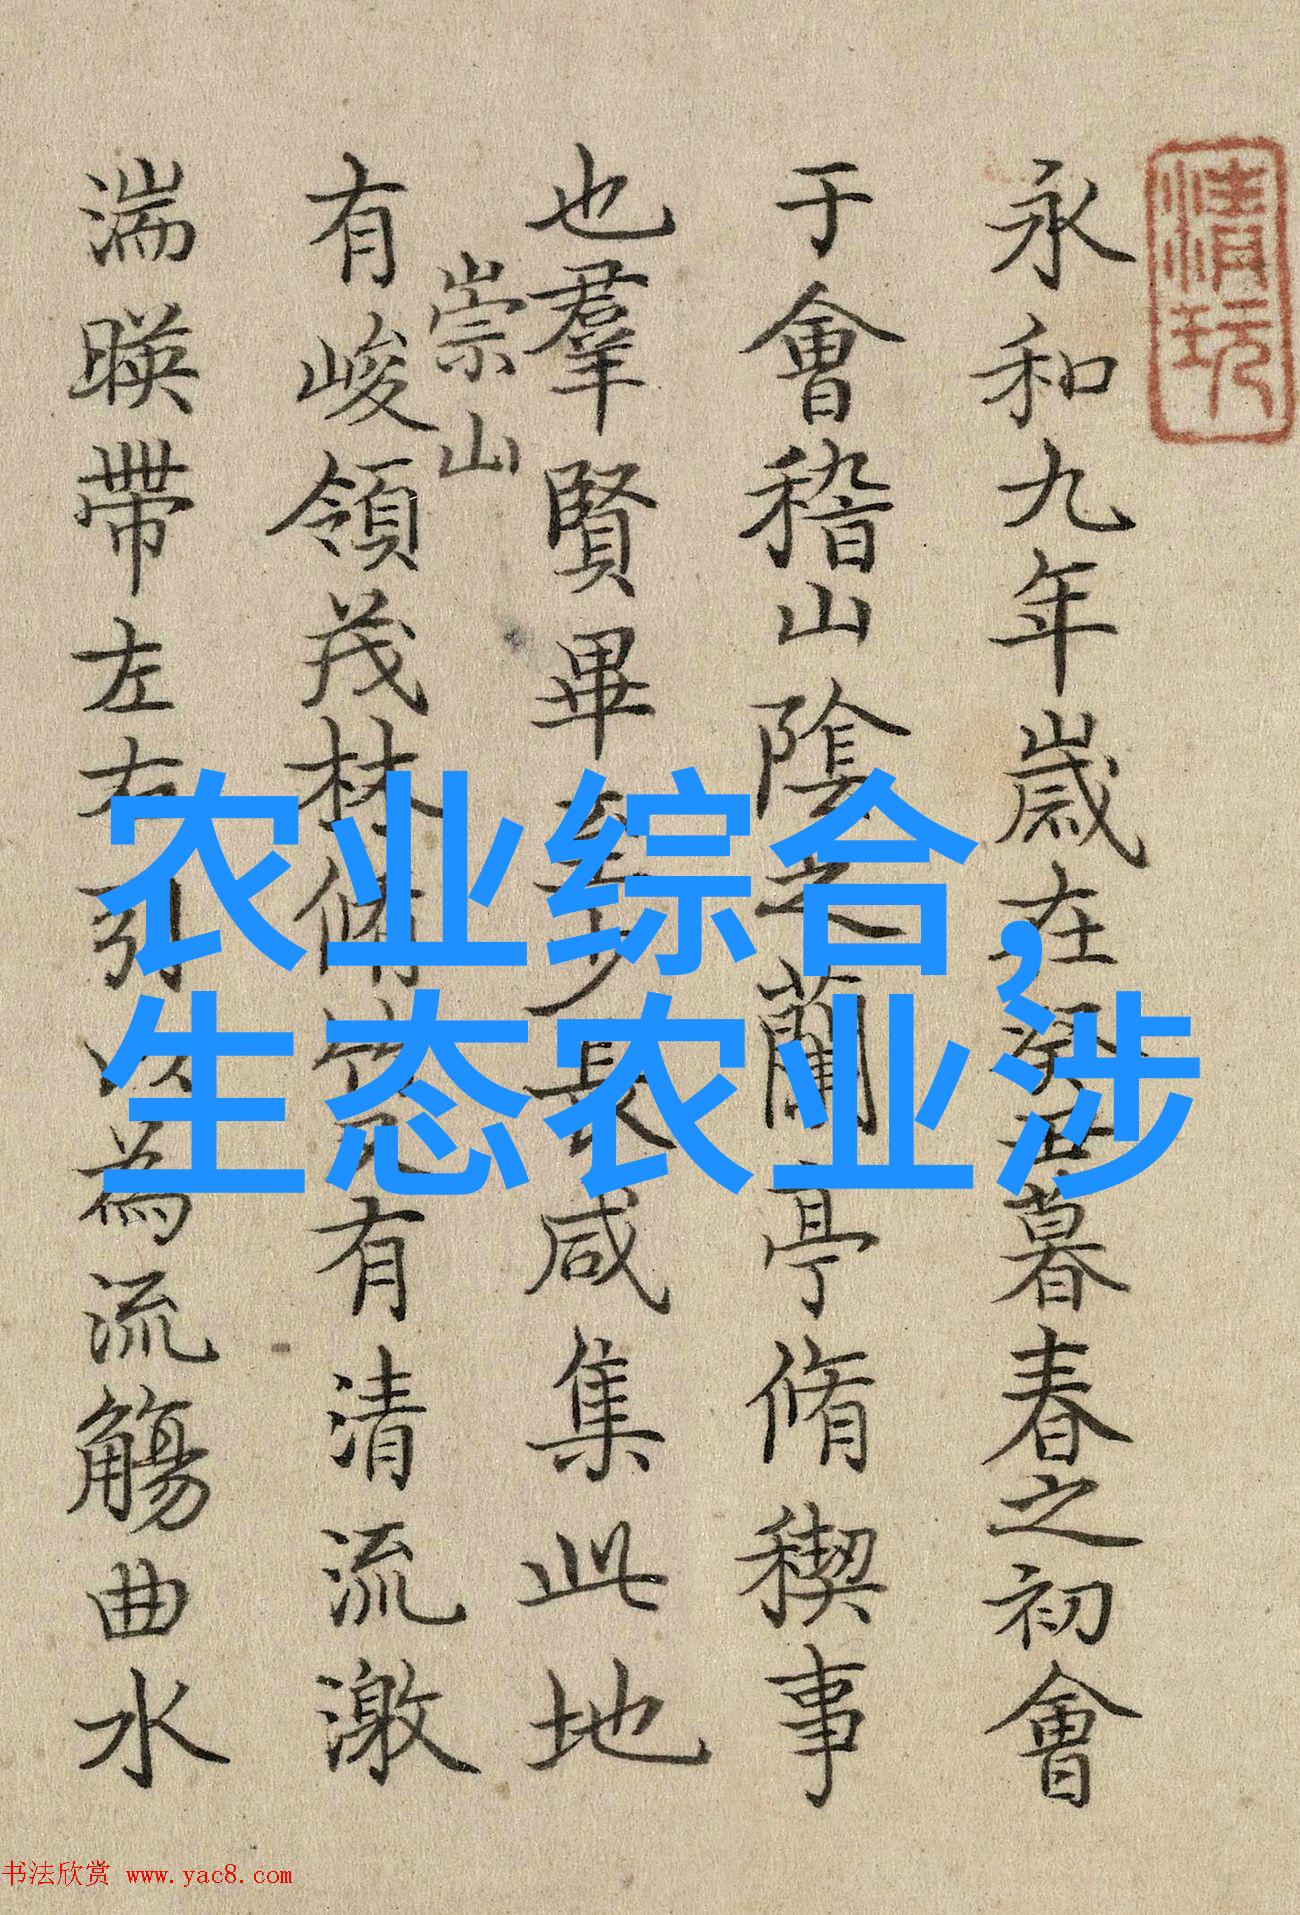 清玩
永和九年歲在癸丑暮春之初會
于會稽山陰之蘭亭脩稧事
也羣賢畢至少長咸集此地
崇山
有峻領茂林脩竹又有清流激
湍暎帶左右引以為流觴曲水
农业综合，
生态农业涉
书法欣赏 www.yac8.com